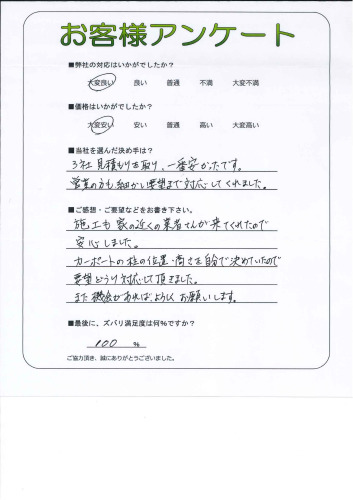 お客様アンケート
■弊社の対応はいかがでしたか？
大変良い 良い 普通 不満 大変不満
■価格はいかがでしたか？
大変安い 安い 普通 高い 大変高い
■当社を選んだ決め手は？
3社見積もりを取り、一番安かったです。
営業の方も細かい要望まで対応してくれました。
■ご感想・ご要望などをお書き下さい。
施工も家の近くの業者さんが来てくれたので
安心しました。
カーポートの柱の位置・高さを自分で決めていたので
要望どうり対応して頂きました。
また機会があればよろしくお願いします。
■最後に、ズバリ満足度は何%ですか？
100 %
ご協力頂き、誠にありがとうございました。